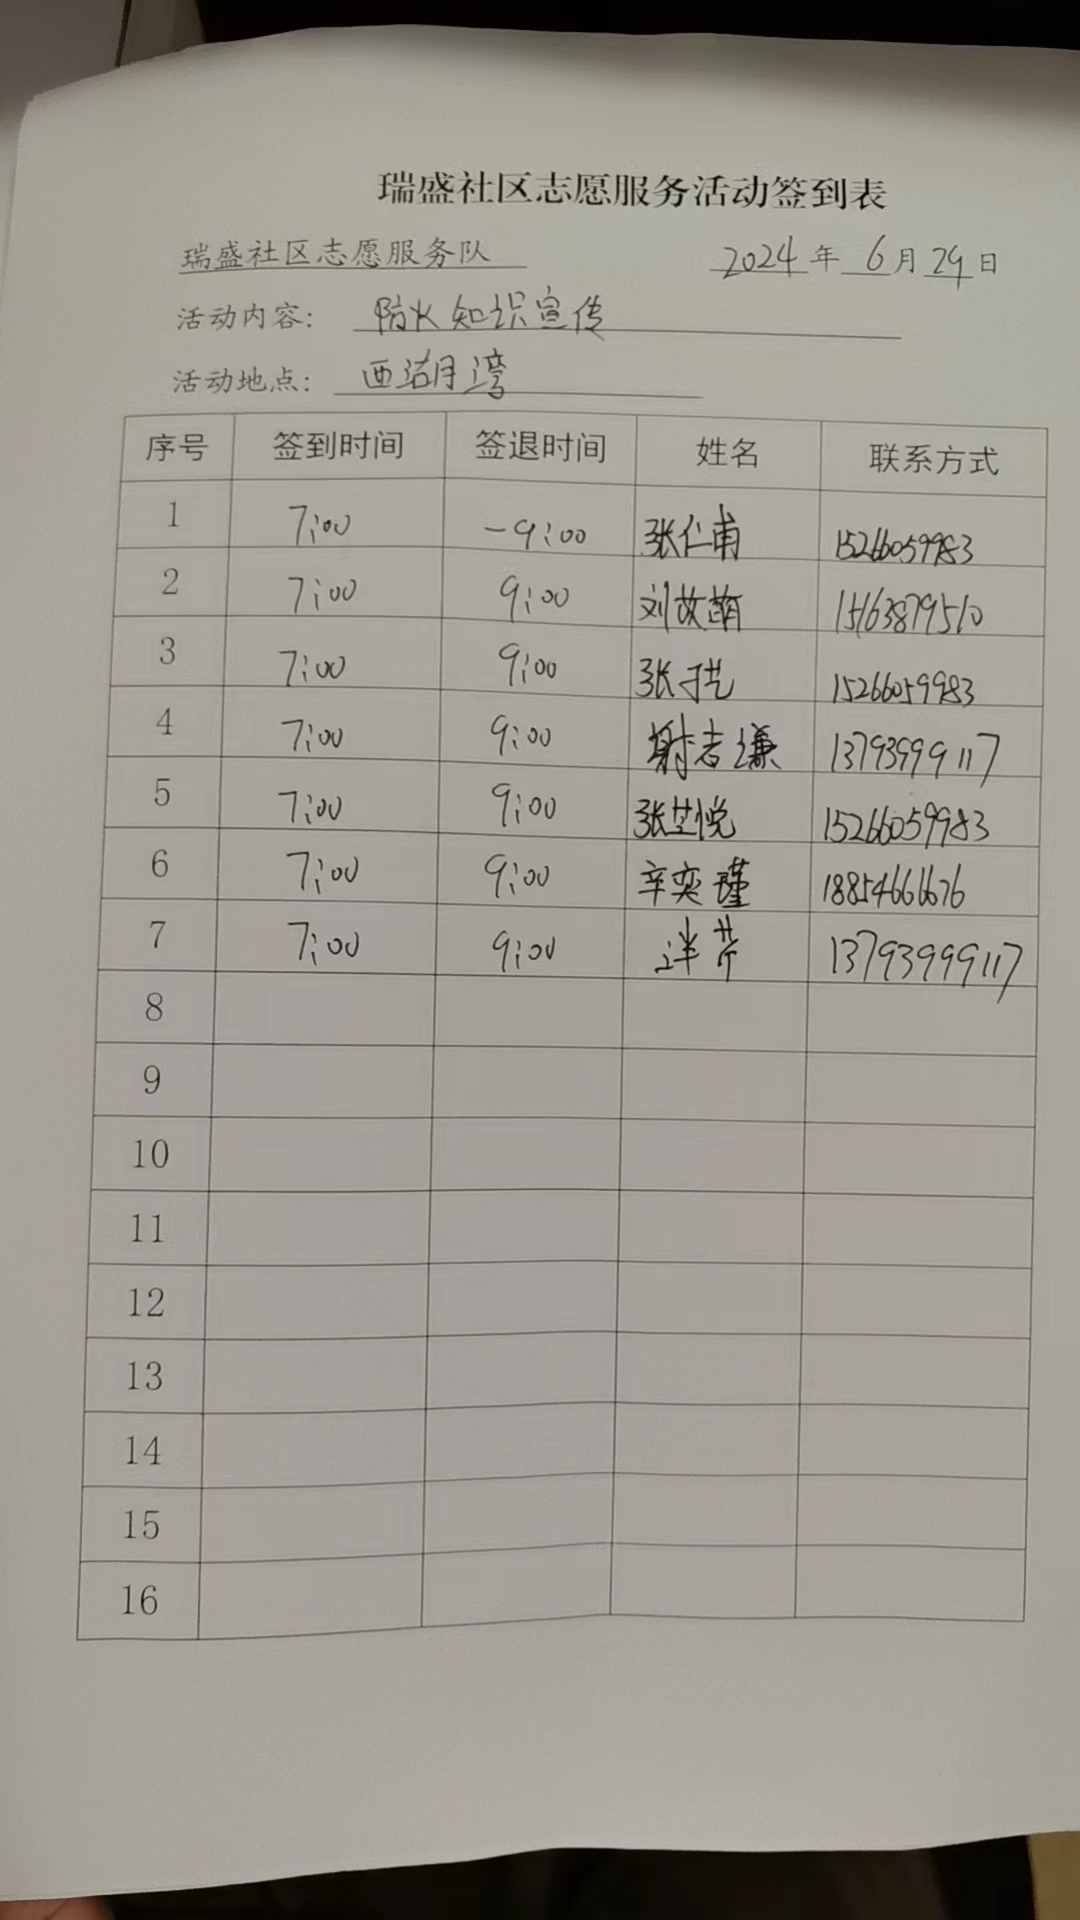 瑞盛社区志愿服务活动签到表
瑞盛社区志愿服务队 2024年 6月29日
活动内容: 防火知识宣传
活动地点: 西湖月湾
序号 签到时间 签退时间 姓名 联系方式
1 7:00 -9:00 张仁甫 15266059983
2 7:00 9:00 刘故萌 15163879510
3 7:00 9:00 张 15266059983
4 7:00 9:00 谢若谦 13793999117
5 7:00 9:00 张芷悦 15266059983
6 7:00 9:00 辛奕瑾 18854666676
7 7:00 9:00 13793999117
8
9
10
11
12
13
14
15
16